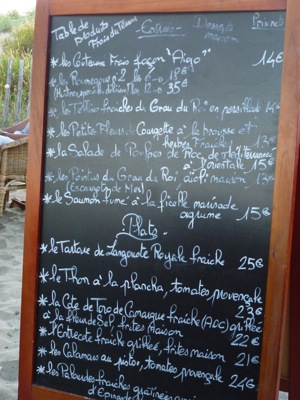 Table de
produits Entrées Desserts
Plats du Terroir maison
* les Couteaux Frais façon "Aïgo" 14€
* les n°2 les 6 18€
les 12 35€
* les Tellines fraîches du Grau du Roi en persillade 14
* les Petites Fleurs de Courgette à la brousse et
herbes fraîches 13€
* la Salade de Poulpes de Roc de Méditerranée
à l'orientale 15€
* les du Grau du Roi aïoli maison 13€
(Escargots de Mer)
* le Saumon fumé à la ficelle marinade
agrume 15€
Plats
* le Tartare de Langouste Royale fraîche 25€
* le Thon à la plancha, tomates provençale
23€
* la Côte de Toro de Camargue fraîche (AOC) grillée
à la fleur de Sel, frites Maison 22€
* l'Entrecôte fraîche grillée, frites maison 21€
* les Calamars au pistou, tomates provençale
24€
* les Palourdes fraîches gratinées
d'Épinards